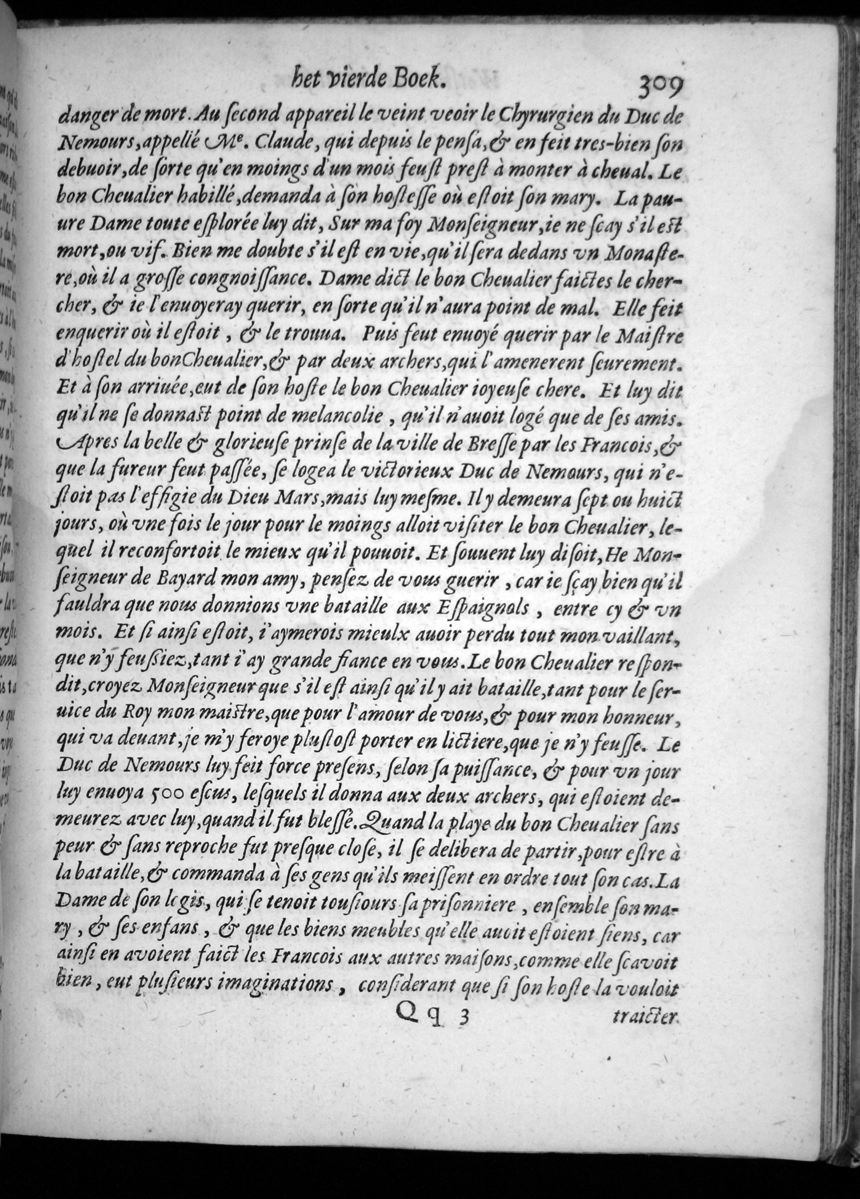 het vierde Boek. 309
danger de mort. Au ſecond appareil le veint veoir le Chyrurgien du Duc de
Nemours, appellé Me. Claude, qui depuis le penſa, & en feit tres-bien ſon
debuoir, de ſorte qu'en moings d'un mois feuſt preſt à monter à cheual. Le
bon Cheualier habillé, demanda à ſon hoſteſſe où eſtoit ſon mary. La pau-
ure Dame toute eſplorée luy dit, Sur ma foy Monſeigneur, ie ne ſcay s'il eſt
mort, ou vif. Bien me doubte s'il eſt en vie, qu'il ſera dedans vn Monaſte-
re, où il a groſſe congnoiſſance. Dame dict le bon Cheualier faictes le cher-
cher, & ie l'enuoyeray querir, en ſorte qu'il n'aura point de mal. Elle feit
enquerir où il eſtoit, & le trouua. Puis feut enuoyé querir par le Maiſtre
d'hoſtel du bon Cheualier, & par deux archers, qui l'amenerent ſeurement.
Et à ſon arriuée, eut de ſon hoſte le bon Cheualier ioyeuſe chere. Et luy dit
qu'il ne ſe donnaſt point de melancolie, qu'il n'auoit logé que de ſes amis.
Apres la belle & glorieuſe prinſe de la ville de Breſſe par les Francois, &
que la fureur feut paſſée, ſe logea le victorieux Duc de Nemours, qui n'e-
ſtoit pas l'effigie du Dieu Mars, mais luy meſme. Il y demeura ſept ou huict
jours, où vne fois le jour pour le moings alloit viſiter le bon Cheualier, le-
quel il reconfortoit le mieux qu'il pouuoit. Et ſouuent luy diſoit, He Mon-
ſeigneur de Bayard mon amy, penſez de vous guerir, car ie ſçay bien qu'il
fauldra que nous donnions vne bataille aux Eſpaignols, entre cy & vn
mois. Et ſi ainſi eſtoit, i'aymerois mieulx auoir perdu tout mon vaillant,
que n'y feuſſiez, tant i'ay grande fiance en vous. Le bon Cheualier reſpon-
dit, croyez Monſeigneur que s'il eſt ainſi qu'il y ait bataille, tant pour le ſer-
uice du Roy mon maiſtre, que pour l'amour de vous, & pour mon honneur,
qui va deuant, je m'y feroye pluſtoſt porter en lictiere, que je n'y feuſſe. Le
Duc de Nemours luy feit force preſens, ſelon ſa puiſſance, & pour vn jour
luy enuoya 500 eſcus, leſquels il donna aux deux archers, qui eſtoient de-
meurez avec luy, quand il fut bleſſé. Quand la playe du bon Cheualier ſans
peur & ſans reproche fut preſque cloſe, il ſe delibera de partir, pour eſtre à
la bataille, & commanda à ſes gens qu'ils meiſſent en ordre tout ſon cas. La
Dame de ſon logis, qui ſe tenoit touſiours ſa priſonniere, enſemble ſon ma-
ry, & ſes enfans, & que les biens meubles qu'elle auoit eſtoient ſiens, car
ainſi en avoient faict les Francois aux autres maiſons, comme elle ſcavoit
bien, eut pluſieurs imaginations, conſiderant que ſi ſon hoſte la vouloit
Qq 3 traicter